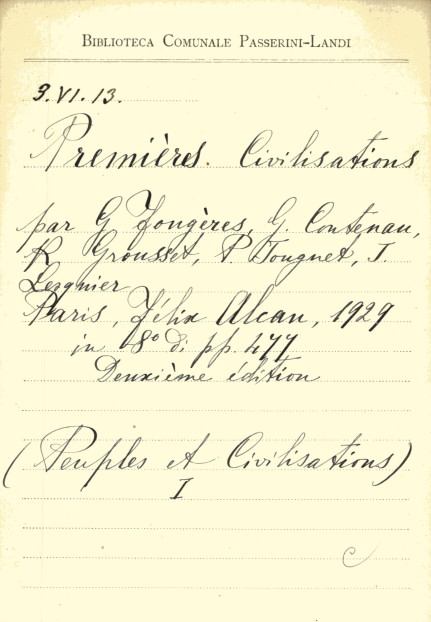 BIBLIOTECA COMUNALE PASSERINI-LANDI
3.VI.13.
Premières. Civilisations
par G Fougères, G. Contenau,
R Grousset, P. Jouguet, J.
Lesquier
Paris, Félix Alcan, 1929
in 8º di pp. 477
Deuxième édition
(Peuples et Civilisations)
I
C